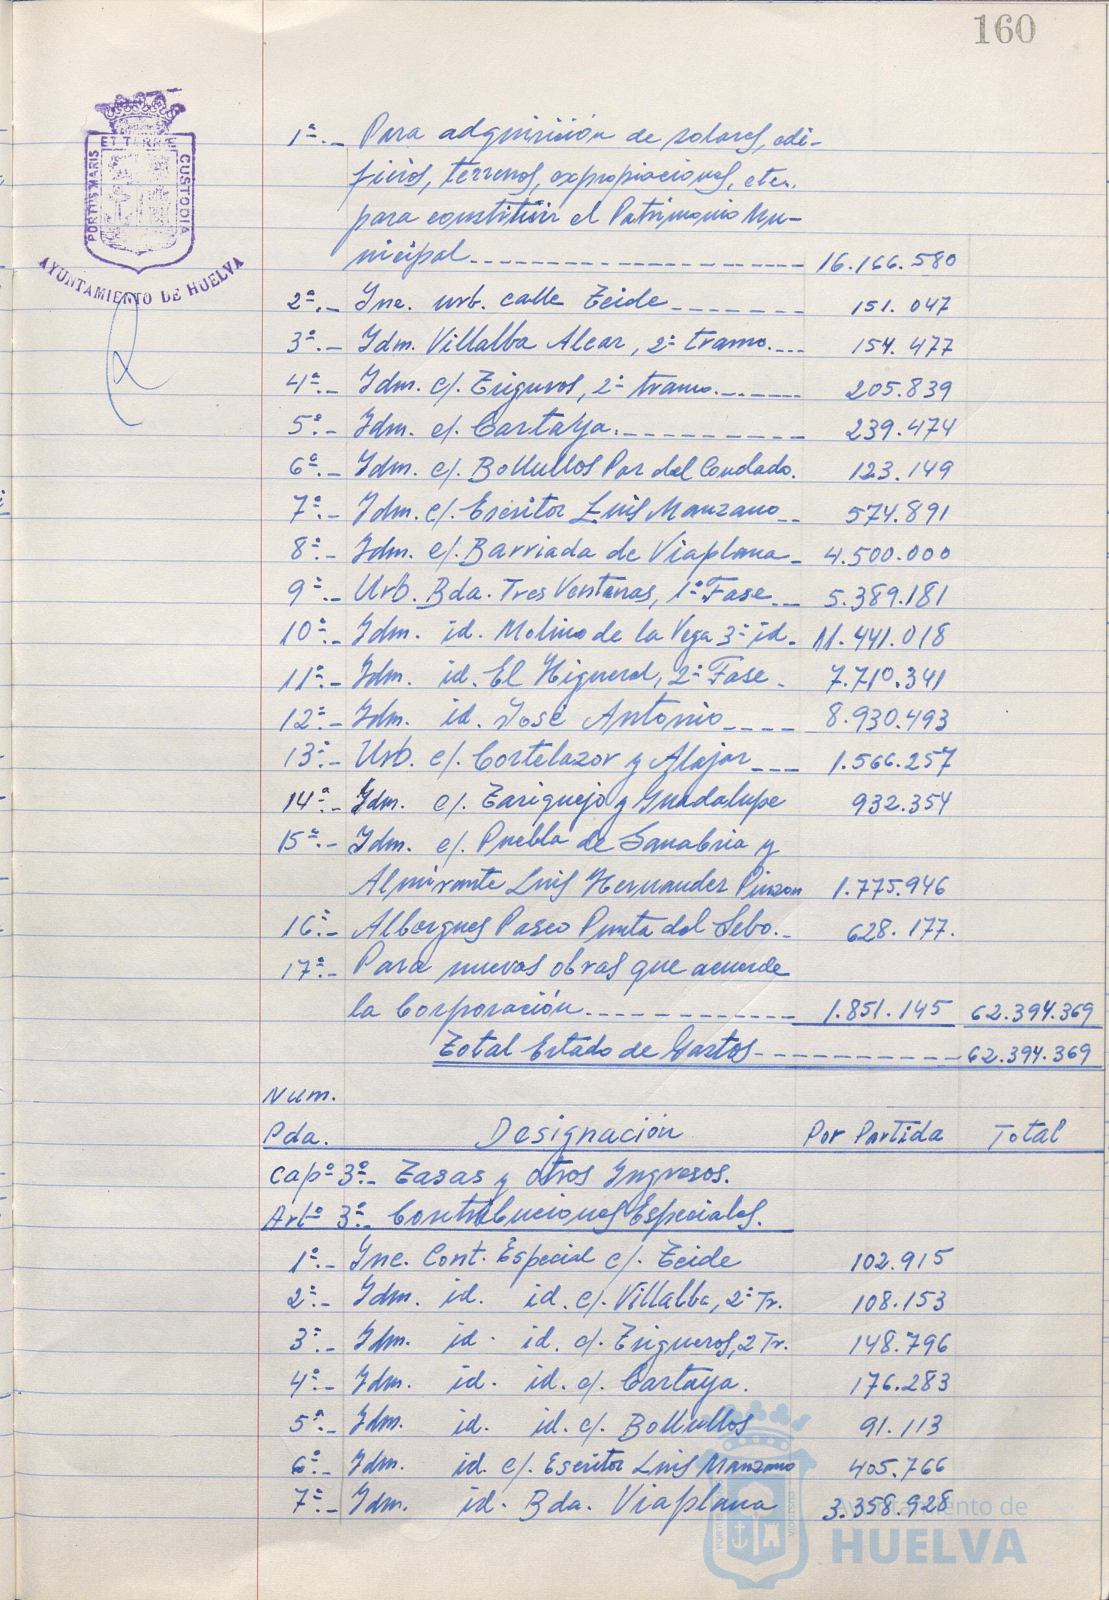 160
PORTUS MARIS ET TERRE CUSTODIA
AYUNTAMIENTO DE HUELVA
1ª.- Para adquisición de solares, edi-
ficios, terrenos, expropiaciones, etc.,
para constituir el Patrimonio Mu-
nicipal 16.166.580
2ª.- Inc. urb. calle Teide 151.047
3ª.- Idm. Villalba Alcar, 2º tramo. 154.477
4ª.- Idm. c/. Trigueros, 2º tramo. 205.839
5ª.- Idm. c/. Cartaya. 239.474
6ª.- Idm. c/. Bollullos Par del Condado. 123.149
7ª.- Idm. c/. Escritor Luis Manzano 574.891
8ª.- Idm. c/. Barriada de Viaplana 4.500.000
9ª.- Urb. Bda. Tres Ventanas, 1ª Fase 5.389.181
10ª.- Idm. id. Molino de la Vega 3ª id. 11.441.018
11ª.- Idm. id. El Higueral, 2ª Fase 7.710.341
12ª.- Idm. id. José Antonio 8.930.493
13ª.- Urb. c/. Cortelazor y Alajar 1.566.257
14ª.- Idm. c/. Tariquejo y Guadalupe 932.354
15ª.- Idm. c/. Puebla de Sanabria y
Almirante Luis Hernandez Pinzon 1.775.946
16ª.- Alborgues Paseo Punta del Sebo. 628.177.
17ª.- Para nuevas obras que acuerde
la Corporación 1.851.145 62.394.369
Total Estado de Gastos 62.394.369
Num.
Pda. Designación Por Partida Total
Capº 3º.- Tasas y otros Ingresos.
Artº 3º.- Contribuciones Especiales.
1ª.- Inc. Cont. Especial c/. Teide 102.915
2ª.- Idm. id. id. c/. Villalba, 2º Tr. 108.153
3ª.- Idm. id. id. c/. Trigueros, 2 Tr. 148.796
4ª.- Idm. id. id. c/. Cartaya. 176.283
5ª.- Idm. id. id. c/. Bollullos 91.113
6ª.- Idm. id. c/. Escritor Luis Manzano 405.766
7ª.- Idm. id. Bda. Viaplana 3.358.928
Ayuntamiento de
HUELVA